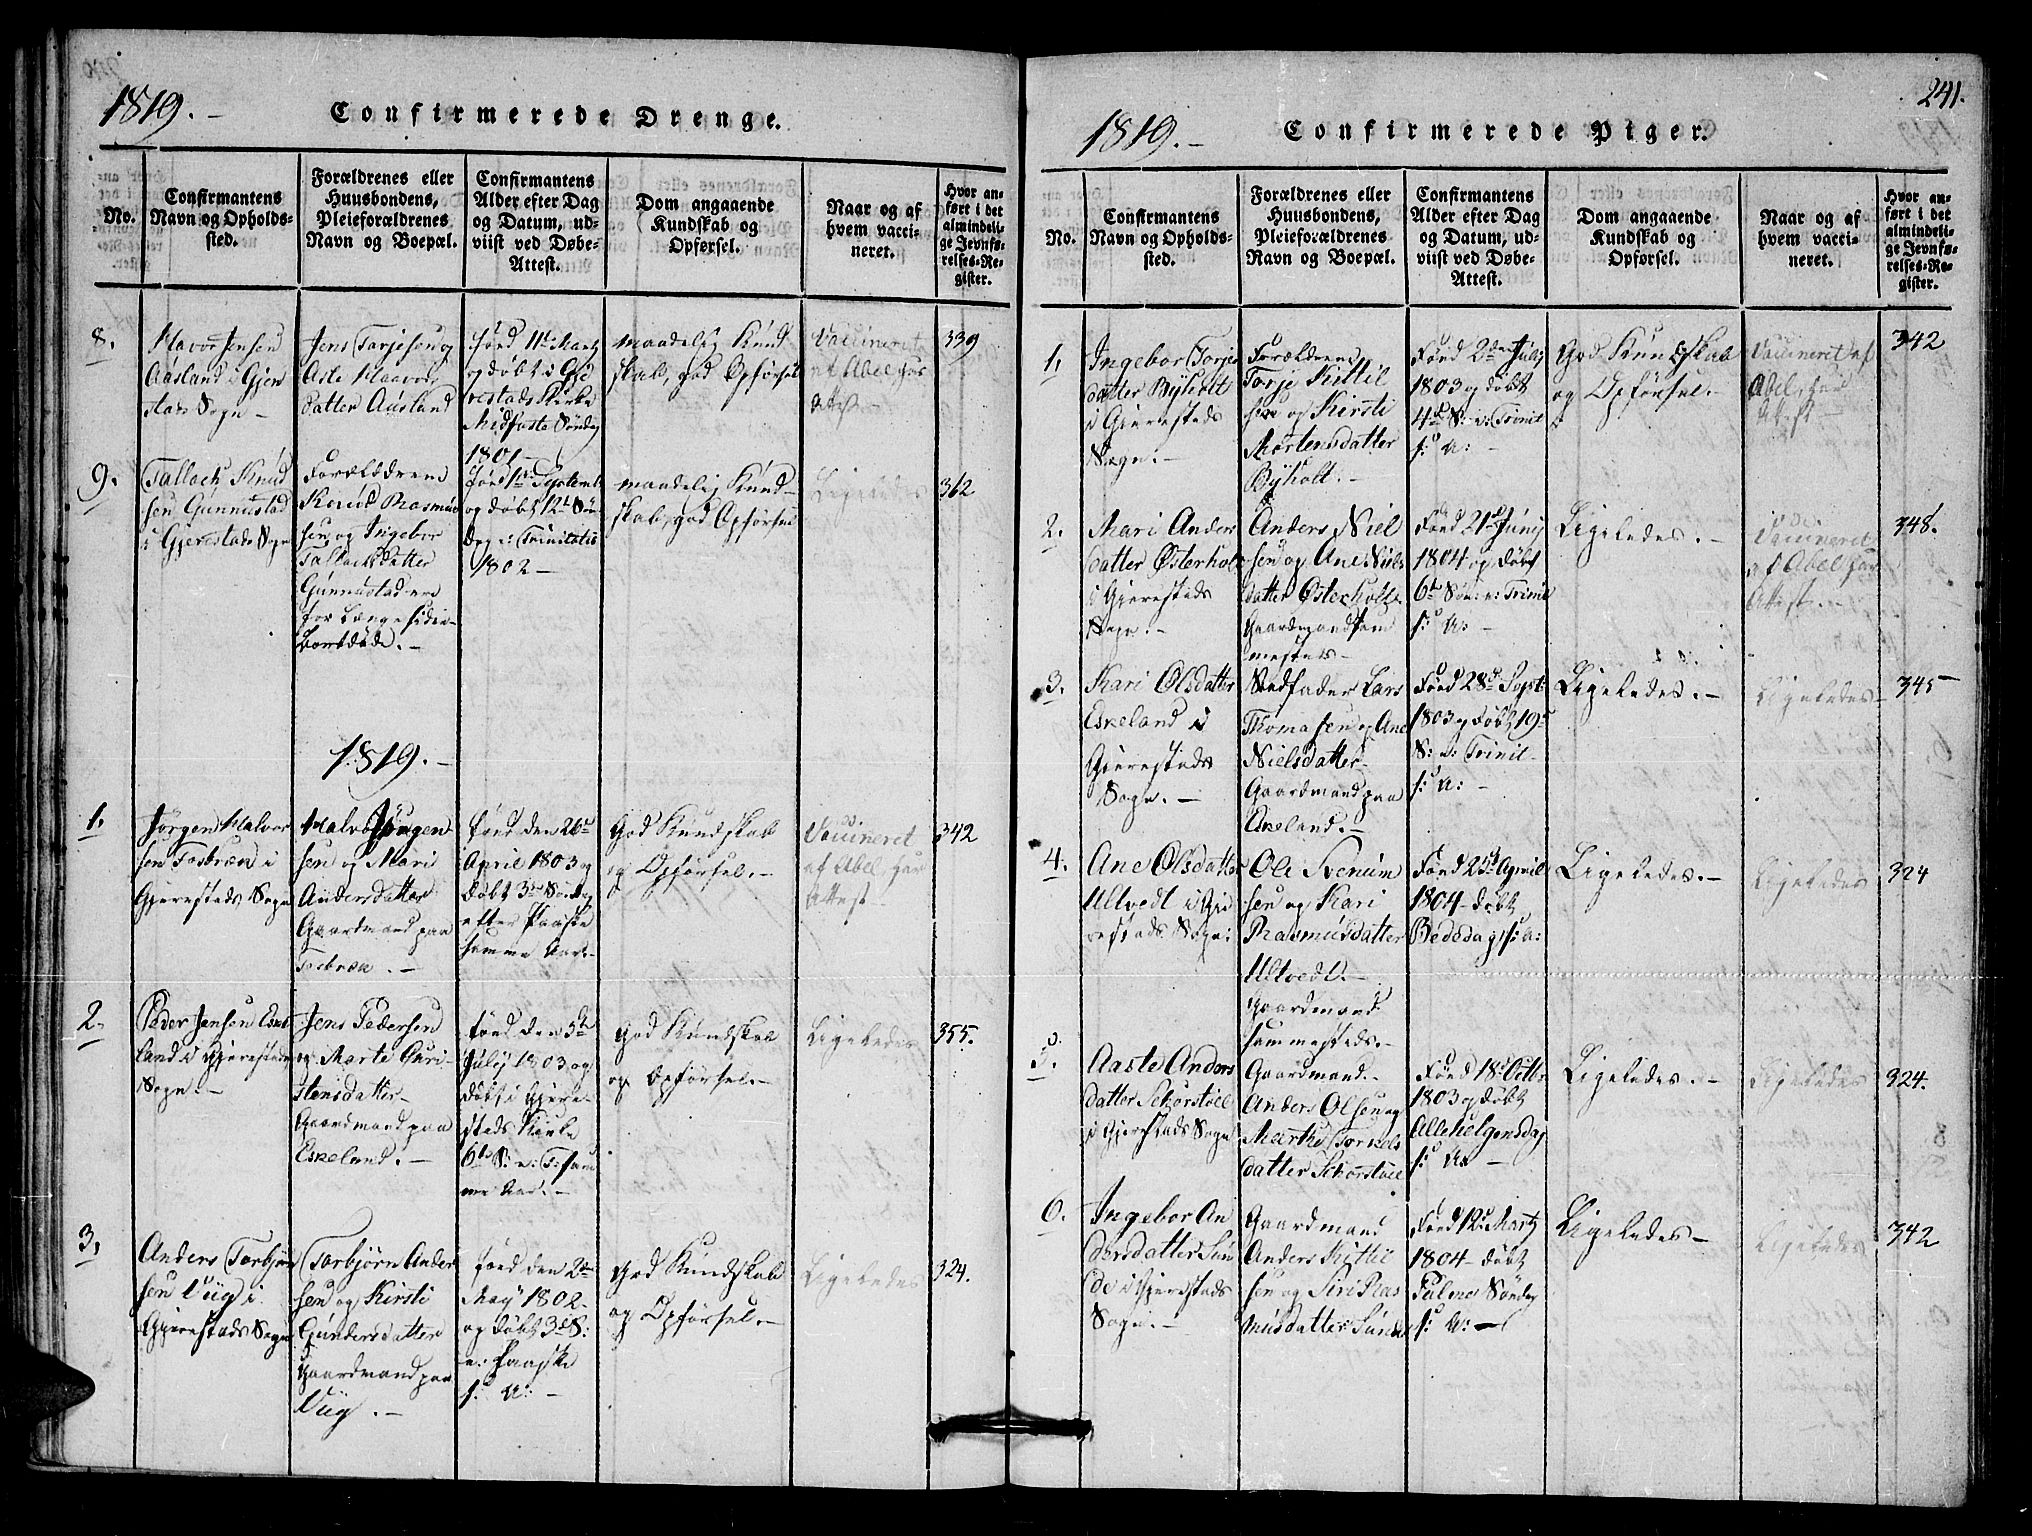 1819.-
Confirmerede Drenge.
No.
Confirmantens
Navn og Opholds-
sted.
Forældrenes eller
Huusbondens,
Pleieforældrenes
Navn og Boepæl.
Confirmantens
Alder efter Dag
og Datum, ud-
viist ved Døbe-
Attest.
Dom angaaende
Kundskab og
Opførsel.
Naar og af
hvem vacci-
neret.
Hvor an-
ført i det
almindeli-
ge Jevnfø-
relses-Re-
gister.
8.
Havor Jensen
Aasland i Gjer
stads Sogn -
Jens Tarjesen og
Asle Haavor
datter Aasland
Fød 11te Martz
og døbt i Gje
restads Kirke
Midfaste Søndag
1801 -
maadelig Kund
skab, god Opførsel
Vaccineret
af Abel, har
Attest -
339
9.
Tallach Knud
sen Gunnestad
i Gjerestads Sogn
Forældrene
Knud Rasmus
sen og Ingebor
Tallachsdatter
Gunnestad ere
for længe siden
bortdøde. -
Fød 1te Septemb
og døbt 12te Søn
dag e: Trinitatis
1802 -
maadelig Kund-
skab, god Opførsel
Ligeledes
362
1819. -
1.
Jørgen Halvor
sen Fosbræn i
Gjerestads Sogn
Halvor Jørgen
sen og Mari
Andersdatter
Gaardmand paa
Fosbræn. -
Fød den 26de
April 1803 og
døbt 3de Søndag
efter Paaske
samme Aar. -
God Kundskab
og Opførsel. -
Vaccineret
af Abel, har
Attest -
342
2.
Peder Jensen Eske
land i Gjerestads
Sogn. -
Jens Pedersen
og Marte Chri-
stensdatter -
Gaardmand paa
Eskeland. -
Fød den 5te
July 1803 og
døbt i Gjere-
stads Kirke
6te S: e: T: sam
me Aar. -
God Kundskab
og Opførsel. -
Ligeledes
355.
3.
Anders Torbjørn
sen Viig i
Gjerestads Sogn
Torbjørn Ander
sen og Kirsti
Gundersdatter
Gaardmand paa
Viig. -
Fød den 2den
May 1802 -
og døbt 3de S:
e: Paaske
s: A: -
God Kundskab
og Opførsel. -
Ligeledes
324.
241.
1819. -
Confirmerede Piger.
No.
Confirmantens
Navn og Opholds-
sted.
Forældrenes eller
Huusbondens,
Pleieforældrenes
Navn og Boepæl.
Confirmantens
Alder efter Dag
og Datum, ud-
viist ved Døbe-
Attest.
Dom angaaende
Kundskab og
Opførsel.
Naar og af
hvem vacci-
neret.
Hvor an-
ført i det
almindeli-
ge Jevnfø-
relses-Re-
gister.
1.
Ingebor Torje
datter Byholt
i Gjerestads
Sogn. -
Forældrene
Torje Kittil
sen og Kirsti
Mortensdatter
Byholt. -
Fød 2den July
1803 og døbt
4de S: e: Trinit
s: A: -
God Kundskab
og Opførsel. -
Vaccineret af
Abel, har
Attest -
342
2.
Mari Anders
datter Østerholt
i Gjerestads
Sogn. -
Anders Niel
sen og Ane Niels
datter Østerholt
Gaardmand sam
mesteds -
Fød 21de Junij
1804 og døbt
6te Søn: e: Trinit
s: A: -
Ligeledes. -
Vaccineret
af Abel, har
Attest. -
348.
3.
Kari Olsdatter
Eskeland i
Gjerestads
Sogn. -
Stedfader Lars
Thomasen og Ane
Nielsdatter -
Gaardmand paa
Eskeland. -
Fød 28de Sept:
1803 og døbt 19de
S: e: Trinit -
s: A: -
Ligeledes. -
Ligeledes -
345
4.
Ane Olsdatter
Ulvedt i Gje
restads Sogn:
Ole Svenum
sen og Kari
Rasmusdatter
Ulvedt. -
Gaardmand
sammesteds. -
Fød 25de April
1804 - døbt
Bededag s: A:
Ligeledes. -
Ligeledes
324
5.
Aaste Anders
datter Skorstøel
i Gjerestads Sogn
Gaardmand -
Anders Olsen og
Marthe Torkels
datter Skorstøel
Fød 18de Octbr
1803 og døbt
Allehelgensdag
s: A: -
Ligeledes. -
Ligeledes
324.
6.
Ingebor An
dersdatter Sun
de i Gjerestads
Sogn. -
Gaardmand
Anders Kittil
sen og Siri Ras
musdatter Sunde
Fød 12te Martz
1804 - døbt
Palme Søndag
s: A: -
Ligeledes -
Ligeledes
342